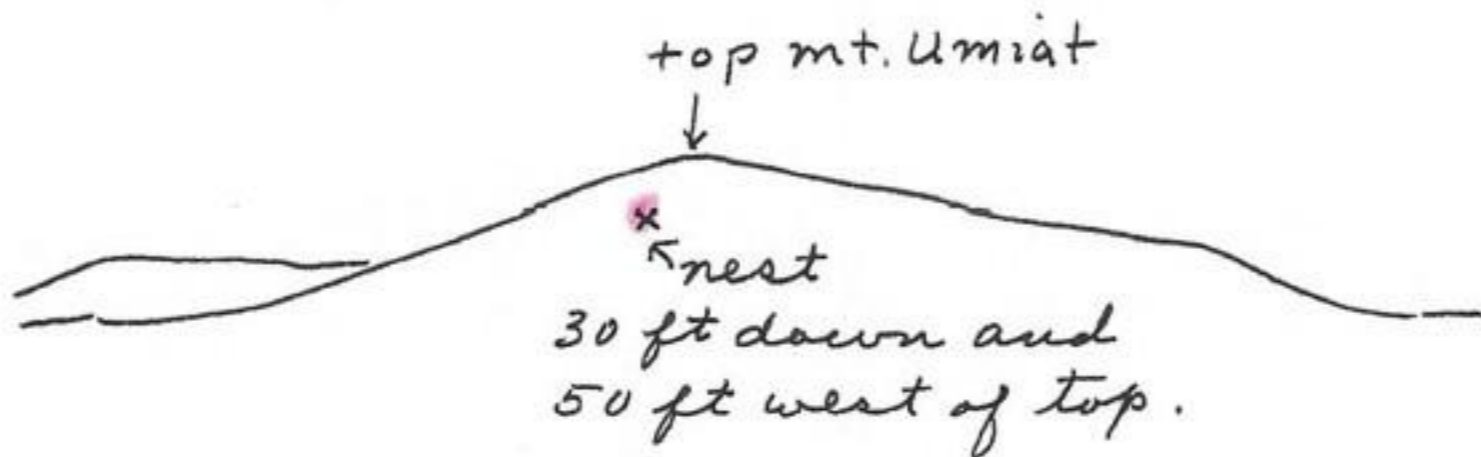 top mt. Umiat
nest
30 ft down and
50 ft west of top.